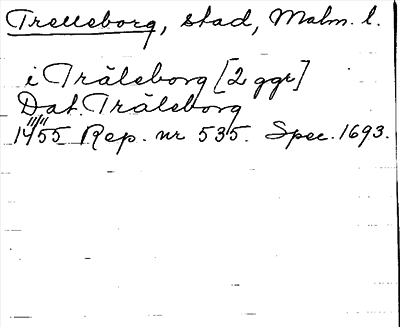 Trelleborg, stad, Malm. l.
i Träleborg [2 ggr]
Dat. Träleborg
11/11
1455 Rep. nr 535. Spec. 1693.